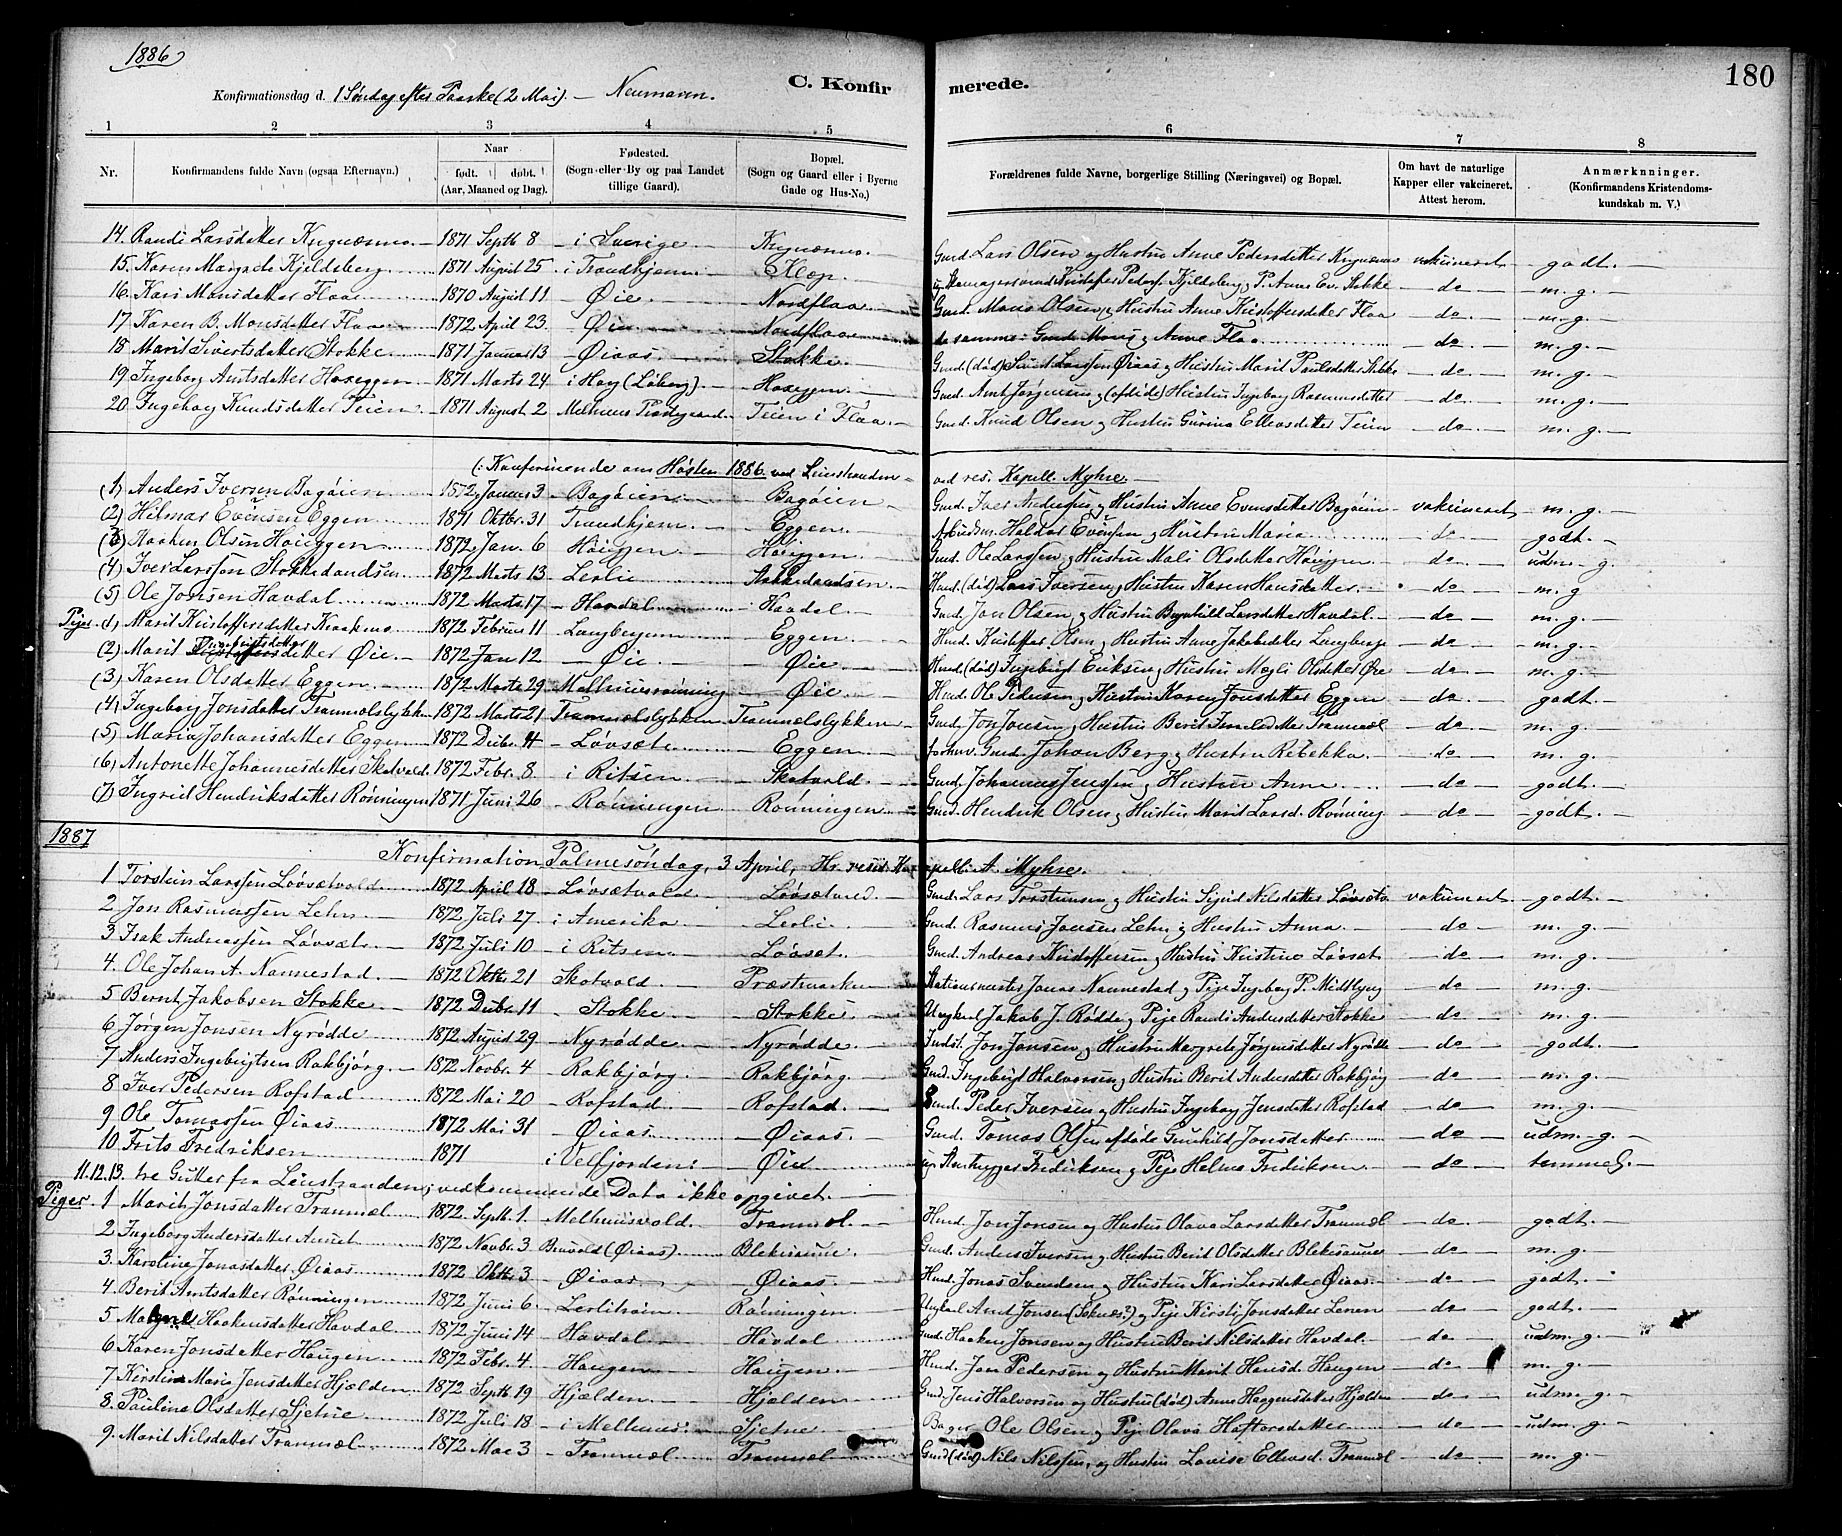 1886
180
C. Konfirmerede.
Konfirmationsdag d. 1 Søndag efter Paaske (2 Mai). —
1 2 3 4 5 6 7 8
Nr. Konfirmandens fulde Navn (ogsaa Efternavn). Naar født. døbt. (Aar, Maaned og Dag). Fødested. (Sogn eller By og paa Landet tillige Gaard). Bopæl. (Sogn og Gaard eller i Byerne Gade og Hus-No.) Forældrenes fulde Navne, borgerlige Stilling (Næringsvei) og Bopæl. Om havt de naturlige Kapper eller vakcineret. Attest herom. Anmærknninger. (Konfirmandens Kristendoms-kundskab m. V.)
14. Randi Larsdatter 1871 Septb 8 – i Sverige – Gmd. Lars Olsen og Hustru Anne Pedersdatter vakcineret – godt. –
15. Karen Margrete Kjeldsberg 1871 August 25 – i Trondhjem – Pedersf. Kjeldsberg, P. Anne Ev. Stokke – do – m. g. –
16. Kari Monsdatter Flaa 1870 August 11 – Øie. – Nordflaa Gmd. Mons Olsen og Hustru Anne Kristoffersdatter Flaa – do – m. g. –
17. Karen B. Monsdatter Flaa 1872 April 23. – Øie – Nordflaa de samme: Gmd. Mons og Anne Flaa – do – m. g. –
18 Marit Sivertsdatter Stokke 1871 Januar 13 – Øiaas – Stokke Gmd. (død) Sivert Larssen Øiaas og Hustru Marit Paulsdatter Stokke – do – m. g. –
19. Ingeborg Arntsdatter Hoseggen – 1871 Marts 24 – i Høy (Løberg). – Hoseggen Gmd. Arnt Jørgensen og (afdøde) Hustru Ingeborg Rasmusdatter – do – m. g. –
20. Ingeborg Knudsdatter Teien – 1871 August 2 Melhuus Præstegaard Teien i Flaa. – Gmd. Knud Olsen og Hustru Gurina Ellevsdatter Teien – do – m. g. –
(: Konfirmerede om Høsten 1886 ved Leinstranden ved res. Kapell. Myhre. –
(1) Anders Iversen Bagøien 1872, Januar 3 – Bagøien – Bagøien Gmd. Iver og Hustru Anne Evensdatter Bagøien – vakcineret – m. g. –
(2) Hilmar Evensen Eggen 1871 Oktbr. 31 Trondhjem – Eggen. Haldor Evensen og Hustru Maria – do – godt. –
(3) Haaken Olsen Høieggen 1872, Jan. 6 – Høieggen – Høieggen. Gmd. Ole Larssen og Hustru Mali Olsdatter Høieggen – do – udm. g.
(4) Iver Larssen Stokkedandsen 1872 Marts 13 – Leslie – Stokkedandsen Husmd. (død) Lars Iversen og Hustru Karen Hansdatter. – do – m. g
(5) Ole Jonsen Havdal 1872 Marts 17 – Havdal – Havdal – Gmd. Jon Olsen og Hustru Bynhild Larsdatter Havdal. – do – m. g. –
Piger (1) Marit Kristoffersdatter Kraakmo 1872 Februar 11 Langbergem – Eggen – Husmd. Kristoffer Olsen og Hustru Anne Jakobsdatter Langberge – do – m. g. –
(2) Marit Øie. – 1872 Jan 12 – Øie – Øie – Husmd. (død) Ingebrigt Eriksen og Hustru Mæli Olsdatter Øie – do – m. g. –
(3) Karen Olsdatter Eggen 1872 Marts 29 – Melhuusrønning – Øie – Husmd. Ole Pedersen og Hustru Karen Jonsdatter Eggen – do – godt. –
(4) Ingeborg Jonsdatter Tranmælslykken 1872 Marts 21 Tranmælslykken Tranmælslykken Gmd. Jon Jonsen og Hustru Berit Tranmæl – do – m. g. –
(5) Maria Johansdatter Eggen 1872 Decbr. 4 – Løvsæt – Eggen forhenv. Gmd. Johan Berg og Hustru Rebekka – do – m. g. –
(6) Antonette Johannesdatter Skotvold. 1872 Febr. 8 – i Ritsen – Skotvold. – Gmd. Johannes Jenssen og Hustru Anne – do – godt. –
(7) Ingrid Hendriksdatter Rønningen 1871 Juni 26 – Rønningen – Rønningen – Gmd. Hendrik Olsen og Hustru Marit Larsd. Rønning – do – godt. –
1887
Konfirmation Palmesøndag, 3 April, Hr. resid. Kapellan A. Myhre.
1 Torstein Larssen Løvsætvold 1872 April 18 – Løvsætvold – Løvsætvold – Gmd. Lars Torstensen og Hustru Sigrid Nilsdatter Løvsætv. vakcineret – godt. –
2 Jon Rasmussen Lehn – 1872 Juli 27 – i Amerika – Lerli – Gmd. Rasmus Jonsen Lehn og Hustru Anna – do – m. g. –
3 Isak Andreassen Løvsæt. – 1872 Juli 10 – i Ritsen – Løvset. – Gmd. Andreas Kristoffersen og Hustru Kristine Løvset – do – m. g. –
4. Ole Johan A. Nannestad. – 1872 Oktbr 21 Skotvold. – Præstmarken – Stationsmester Jonas Nannestad og Pige Ingeborg P. Midtlyng – do – m. g. –
5 Bernt Jakobsen Stokke – 1872 Decbr. 11 – Stokke – Stokke – Ungkarl Jakob J. Rødde og Pige Randi Andersdatter Stokke – do – m. g. –
6 Jørgen Jonsen Nyrødde – 1872 August 29 – Nyrødde – Nyrødde – Indst. Jon Jonsen og Hustru Margrete Jørgensdatter Nyrødde – do – godt. –
7 Anders Ingebrigtsen Rakbjørg – 1872 Novbr. 4 – Rakbjørg – Rakbjørg – Gmd. Ingebrigt Halvorsen og Hustru Berit Andersdatter Rakbjørg – do – m. g. –
8 Iver Pedersen Rofstad 1872 Mai 20 – Rofstad – Rofstad. – Gmd. Peder Iversen og Hustru Ingeborg Jensdatter Rofstad – do – m. g. –
9. Ole Tomassen Øiaas 1872 Mai 31 – Øiaas – Øiaas – Gmd. Tomas Olsen afdøde Gunhild Jonsdatter – do – udm. g. –
10 Frits Fredriksen 1871 i Velfjorden – Øie Fredriksen og Pige Helma Fredriksen – do – temmel. –
11. 12. 13. tre Gutter fra Leinstranden, vedkommende Data ikke opgivet. –
Piger. 1 Marit Jonsdatter Tranmæl 1872 Septb. 1. – Melhuusvold. Tranmæl. – Husmd. Jon Jonsen og Hustru Olava Larsdatter Tranmæl – do – godt. –
2 Ingeborg Andersdatter 1872 Novbr. 3 (Øiaas). – Blekesaune – Gmd. Anders Iversen og Hustru Berit Olsdatter Blekesaune – do – m. g. –
3. Karoline Jonasdatter Øiaas 1872 Oktbr 3 – Øiaas – Øiaas. – Husmd. Jonas Svendsen og Hustru Kari Larsdatter Øiaas. – do – godt. –
4 Berit Arntsdatter Rønningen 1872 Juni 6. – Lerlitrøen – Rønningen – Ungkarl Arnt Jonsen (Søknes?) og Pige Kirsti Jonsdatter Leren – do – godt. –
5 Haakensdatter Havdal 1872 Juni 14 – Havdal – Havdal – Gmd. Haaken Jonsen og Hustru Berit Nilsdatter Havdal. – do – udm. g. –
6 Karen Jonsdatter Haugen 1872 Febr. 4. – Haugen – Haugen – Husmd. Jon Pedersen og Hustru Marit Hansd. Haugen – do – m. g. –
7 Kirstine Maria Jensdatter Hjælden 1872 Septb. 19 Hjælden – Hjælden – Gmd. Jens Halvorsen og Hustru (død) Anne Haagensdatter Hjælden – do – udm. g. –
8. Paulina Olsdatter Sjetne 1872 Juli 18 – i Melhuus – Sjetne – Bager Ole Olsen og Pige Olava Haftorsdatter – do – udm. g. –
9. Marit Nilsdatter Tranmæl 1872 Mai 3 – Tranmæl – Tranmæl – Gmd. (død) Nils Nilssen, og Hustru Lovise Ellevsd. Tranmæl – do – m. g. –